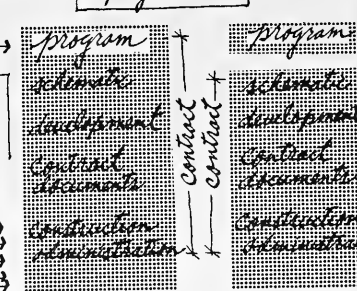 program
schematic
development
contract
documents
construction
administration
contract
contract
program
schematic
development
contract
documents
construction
administra